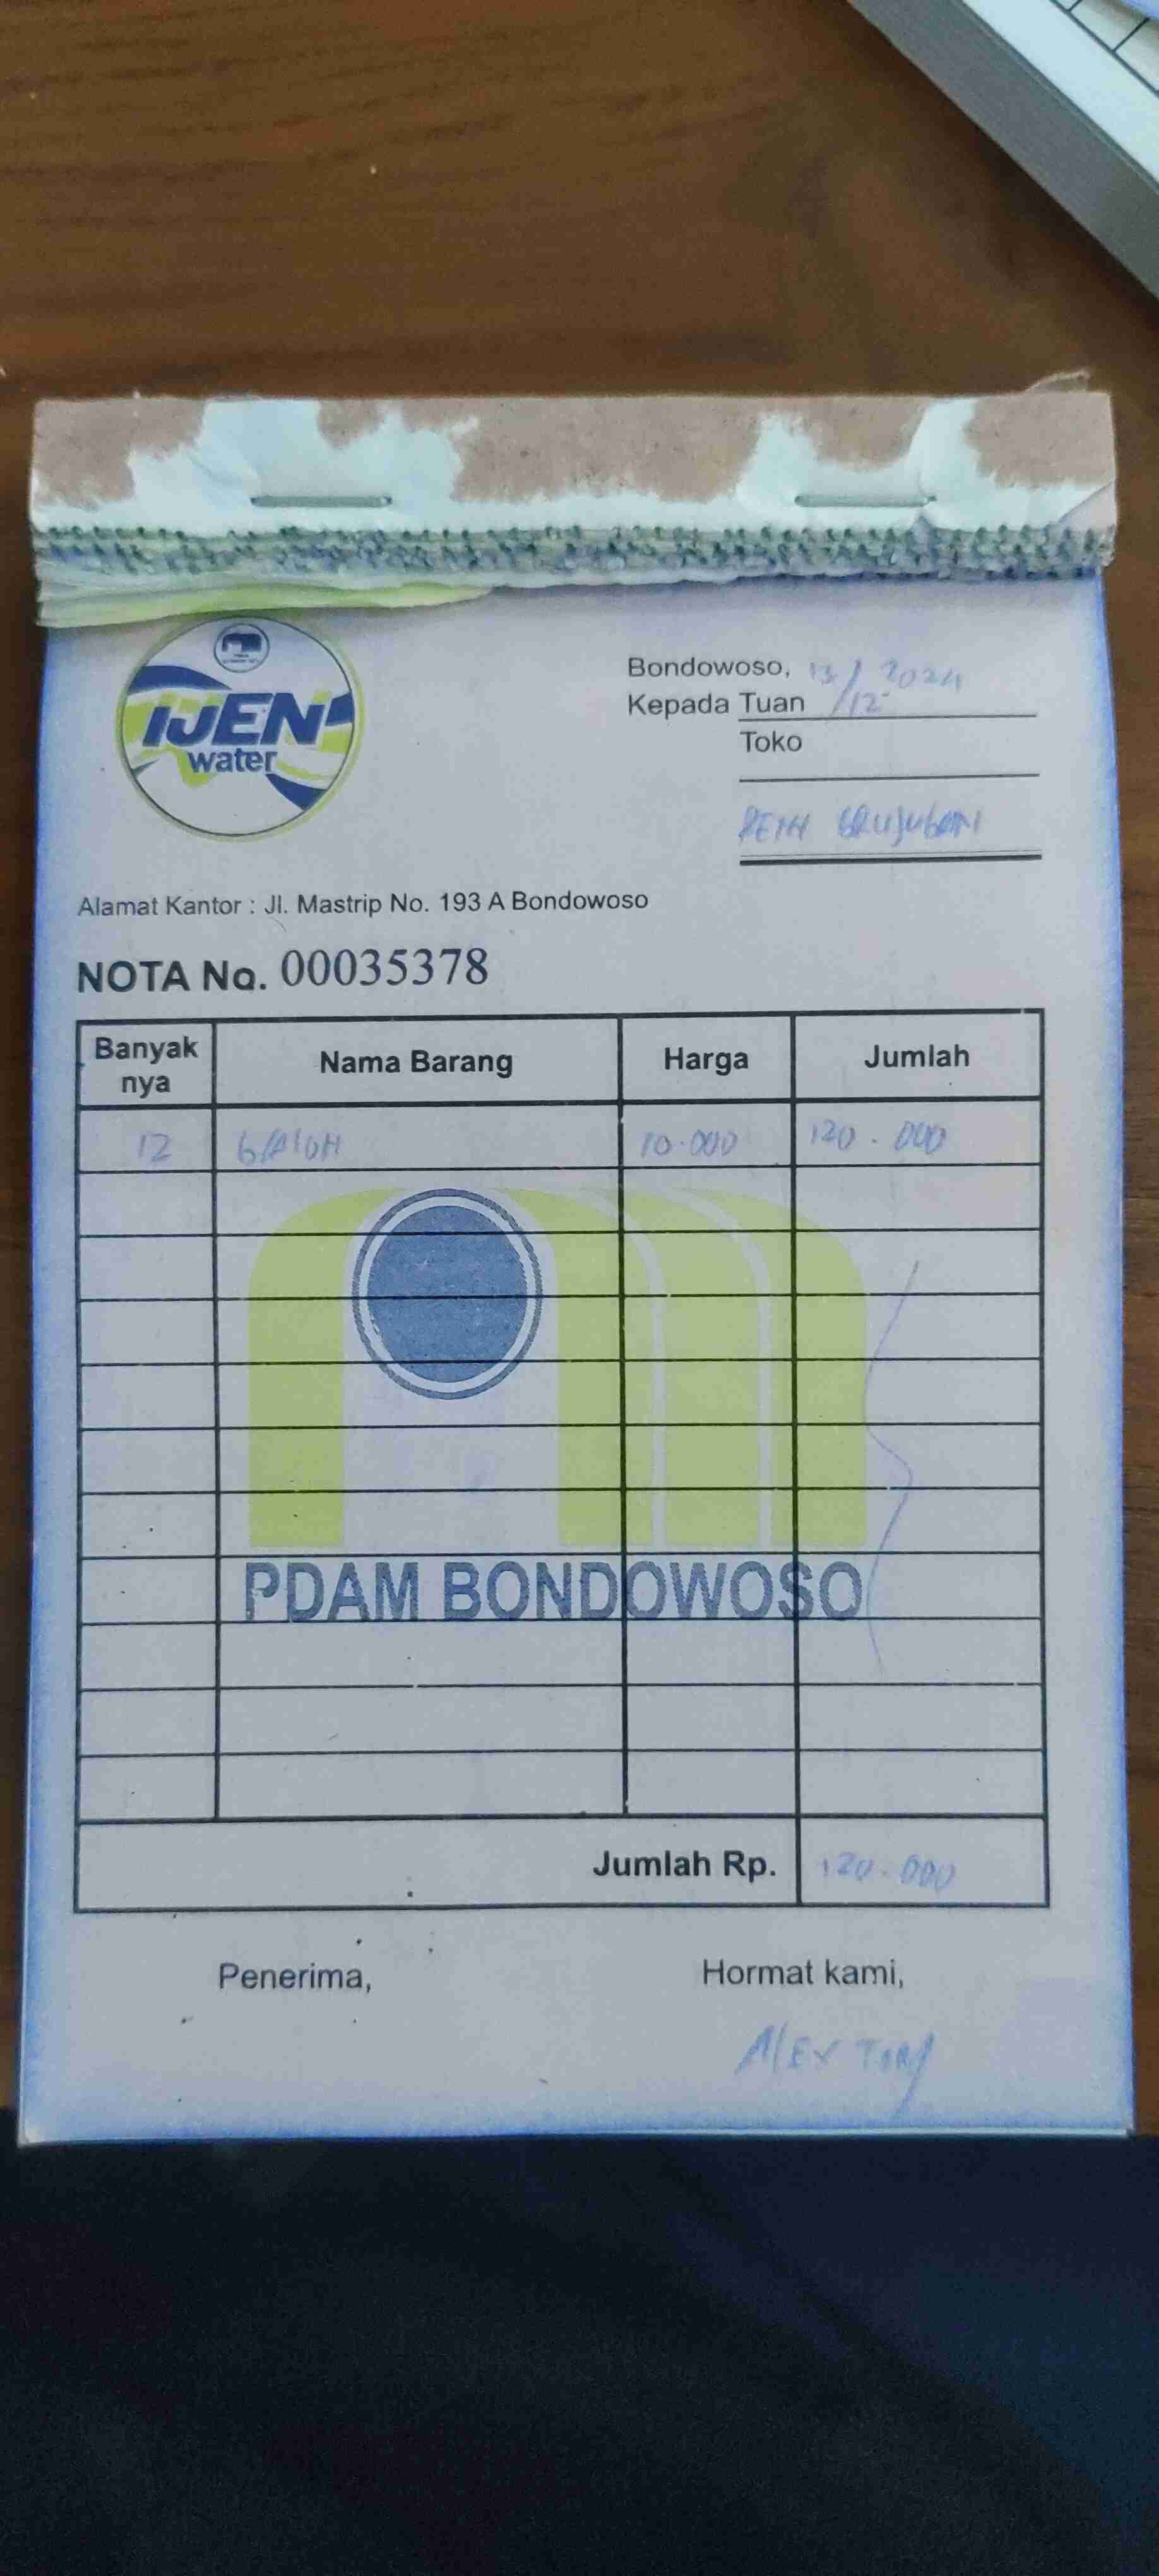 IJEN
water
Bondowoso, 13/12 2024
Kepada Tuan
Toko
GRUJUGAN
Alamat Kantor : Jl. Mastrip No. 193 A Bondowoso
NOTA No. 00035378
Banyak nya Nama Barang Harga Jumlah
12 GAlON 10.000 120.000
PDAM BONDOWOSO
Jumlah Rp. 120.000
Penerima, Hormat kami,